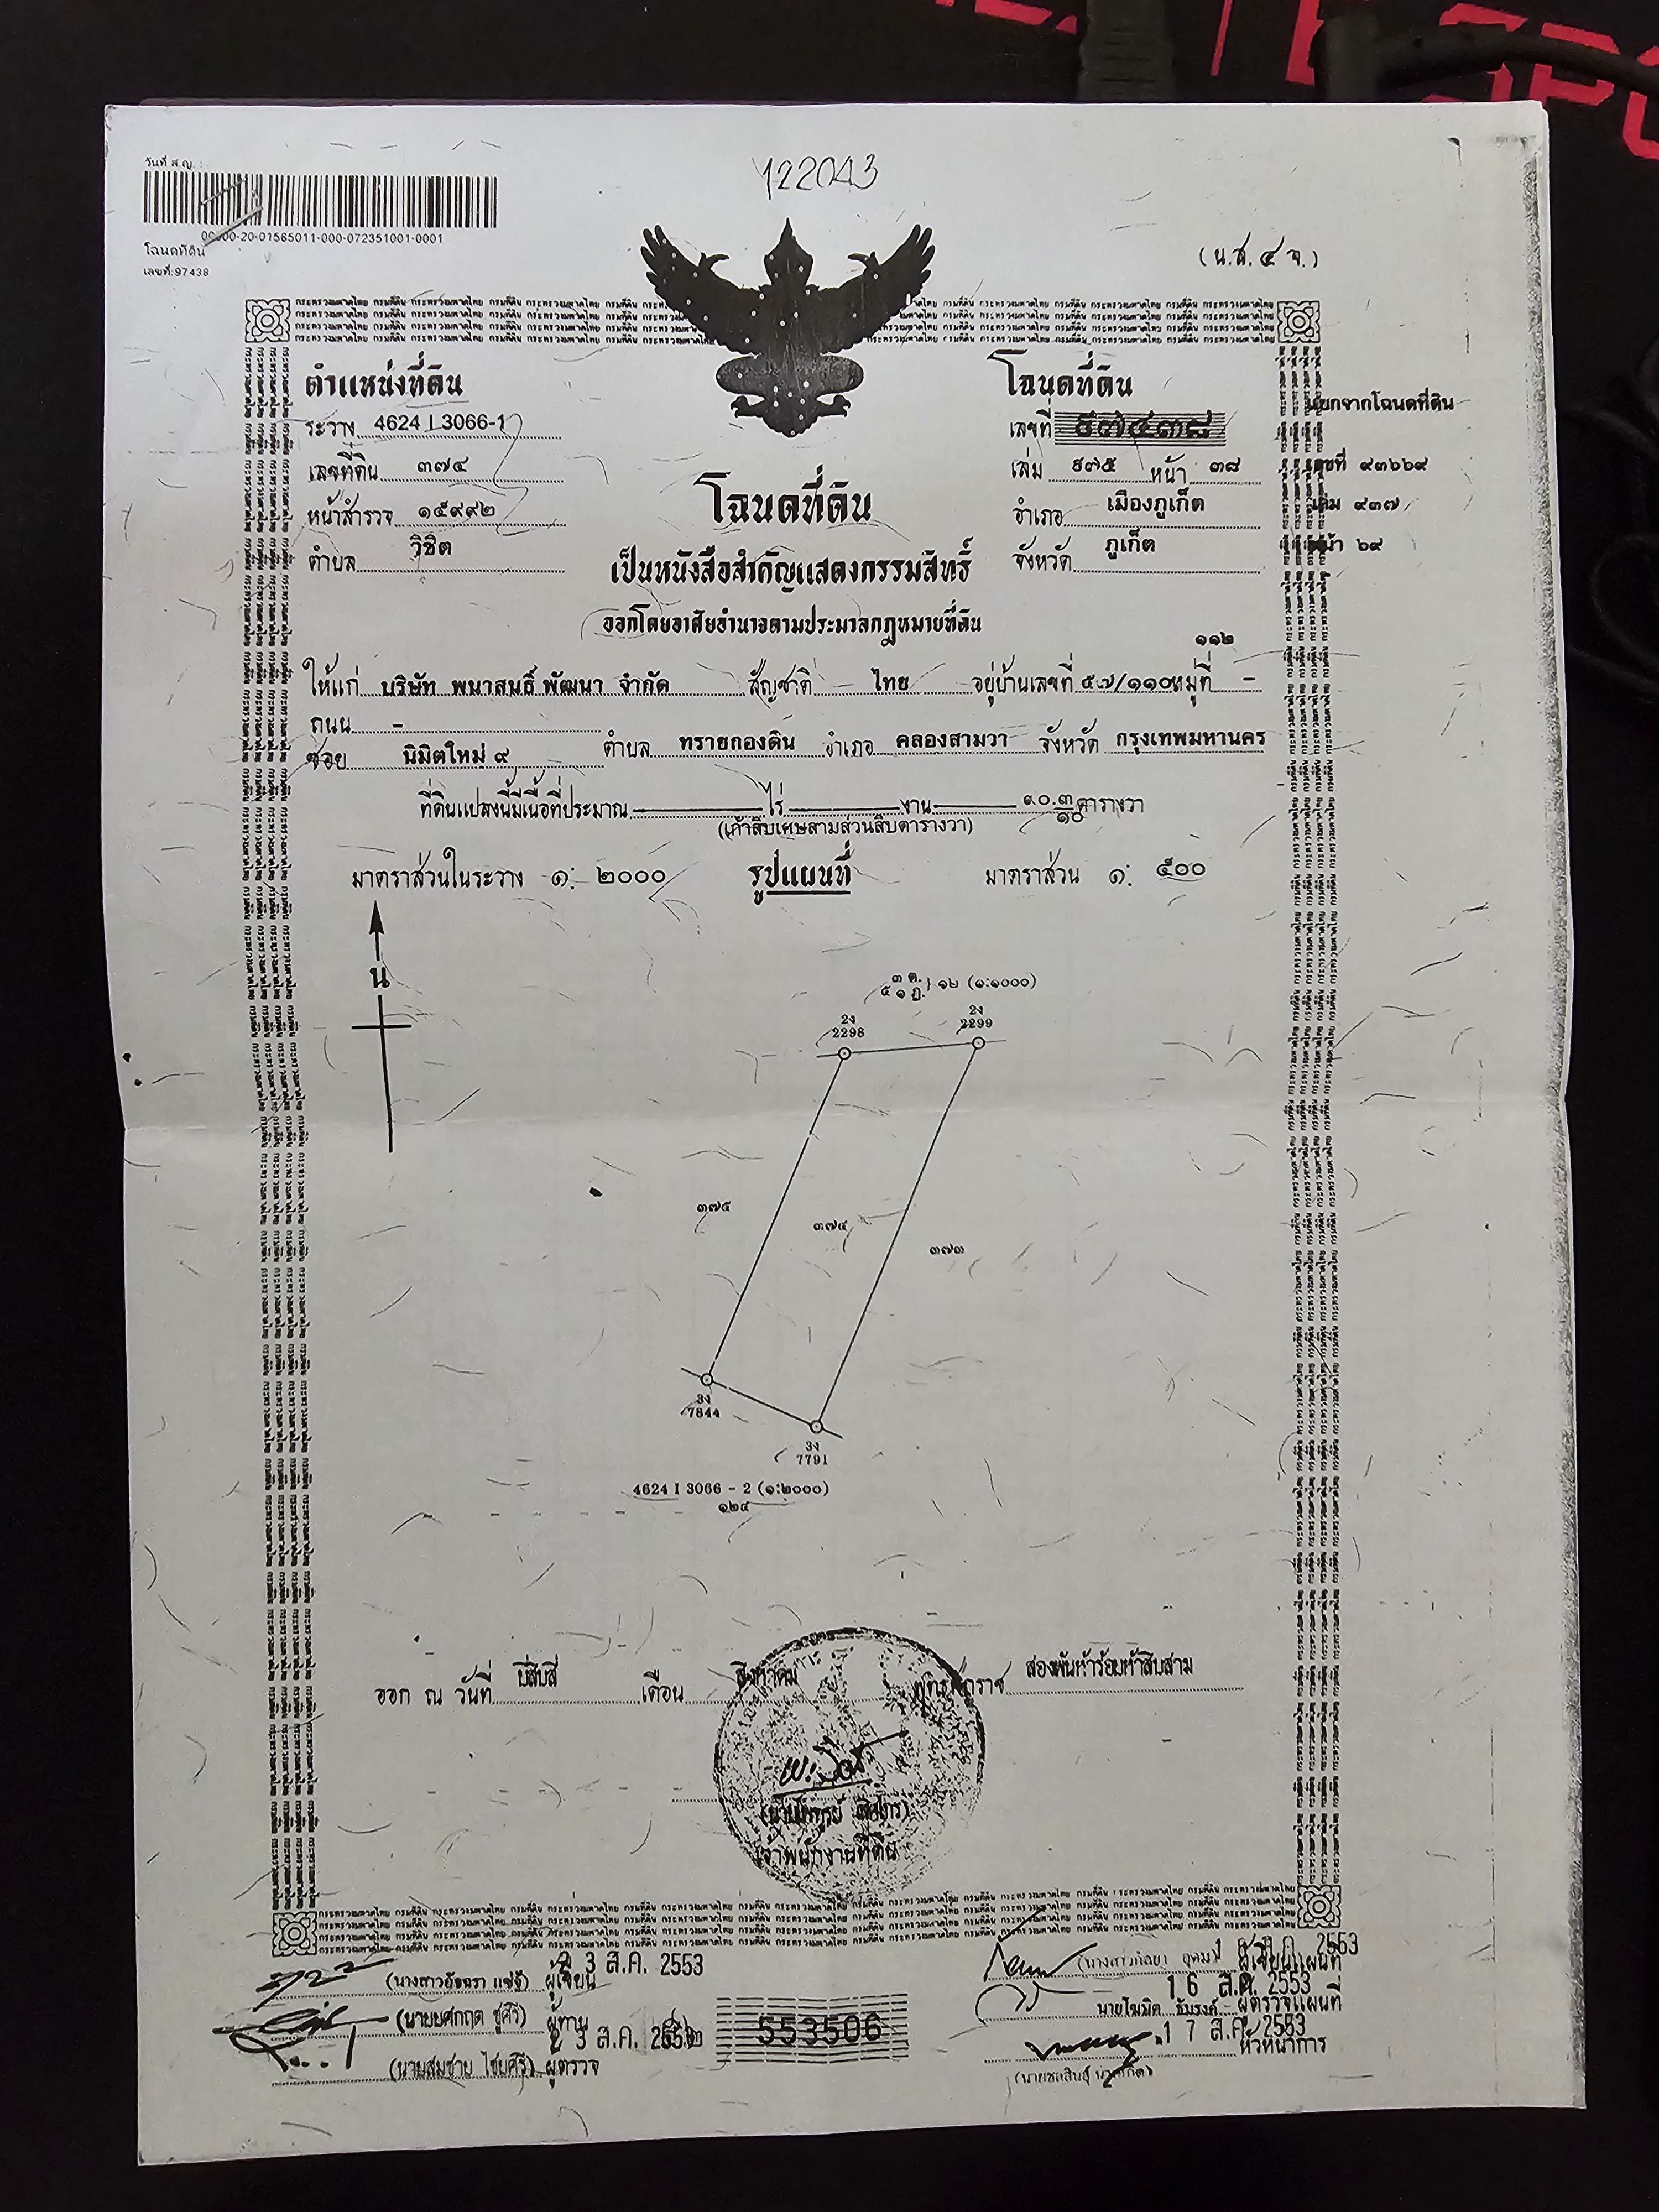 วันที่ ส.ญ. :
122043
-20-01565011-000-072351001-0001
โฉนดที่ดิน
เลขที่:97438
(น.ส. ๔ จ.)
ตำแหน่งที่ดิน
ระวาง 4624 I 3066-1
เลขที่ดิน ๓๗๔
หน้าสำรวจ ๑๕๙๙๒
ตำบล วิชิต
โฉนดที่ดิน
เลขที่ ๙๗๔๓๘
เล่ม ๙๗๕ หน้า ๓๘
อำเภอ เมืองภูเก็ต
จังหวัด ภูเก็ต
แยกจากโฉนดที่ดิน
เลขที่ ๙๓๖๖๙
เล่ม ๙๓๗
หน้า ๖๙
โฉนดที่ดิน
เป็นหนังสือสำคัญแสดงกรรมสิทธิ์
ออกโดยอาศัยอำนาจตามประมวลกฎหมายที่ดิน
๑๑๒
ให้แก่ บริษัท พนาสนธิ์ พัฒนา จำกัด สัญชาติ ไทย อยู่บ้านเลขที่ ๕๗/๑๑๐ หมู่ที่ -
ถนน -
ซอย นิมิตใหม่ ๙ ตำบล ทรายกองดิน อำเภอ คลองสามวา จังหวัด กรุงเทพมหานคร
ที่ดินแปลงนี้มีเนื้อที่ประมาณ ไร่ งาน ๙๐.๓/๑๐ ตารางวา
(เก้าสิบเศษสามส่วนสิบตารางวา)
มาตราส่วนในระวาง ๑: ๒๐๐๐ รูปแผนที่ มาตราส่วน ๑: ๕๐๐
น
๓ ต.
๕ ๑ ฎ. } ๑๒ (๑:๑๐๐๐)
2ง 2298
2ง 2299
๓๗๕
๓๗๔
๓๗๓
3ง 7844
3ง 7791
4624 I 3066 - 2 (๑:๒๐๐๐)
๑๒๔
ออก ณ วันที่ ยี่สิบสี่ เดือน สิงหาคม พุทธศักราช สองพันห้าร้อยห้าสิบสาม
เจ้าพนักงานที่ดิน
(นางสาวอัจฉรา แซ่จู้) ผู้เขียน 23 ส.ค. 2553
(นายยศกฤต ชูศิริ) ผู้ทาน
(นายสมชาย ไชยศิริ) ผู้ตรวจ 23 ส.ค. 2553
553506
(นางสาวกัลยา อุดม) ผู้เขียนแผนที่ 2553
นายโฆมิต ธัมรงค์ ผู้ตรวจแผนที่ 16 ส.ค. 2553
หัวหน้าการ 17 ส.ค. 2553